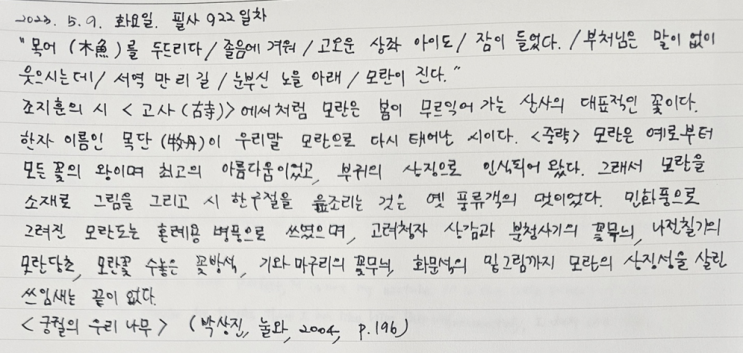 2023. 5. 9. 화요일. 필사 922일차
"목어 (木魚)를 두드리다 / 졸음에 겨워 / 고오운 상좌 아이도 / 잠이 들었다. / 부처님은 말이 없이
웃으시는데 / 서역 만 리 길 / 눈부신 노을 아래 / 모란이 진다."
조지훈의 시 <고사 (古寺)>에서처럼 모란은 봄이 무르익어 가는 산사의 대표적인 꽃이다.
한자 이름인 목단 (牧丹)이 우리말 모란으로 다시 태어난 시이다. <중략> 모란은 예로부터
모든 꽃의 왕이며 최고의 아름다움이었고, 부귀의 상징으로 인식되어 왔다. 그래서 모란을
소재로 그림을 그리고 시 한 구절을 읊조리는 것은 옛 풍류객의 멋이었다. 민화풍으로
그려진 모란도는 혼례용 병풍으로 쓰였으며, 고려청자 상감과 분청사기의 꽃무늬, 나전칠기의
모란당초, 모란꽃 수놓은 꽃방석, 기와 마구리의 꽃무늬, 화문석의 밑그림까지 모란의 상징성을 살린
쓰임새는 끝이 없다.
<궁궐의 우리 나무> (박상진, 눌와, 2004, p.196)